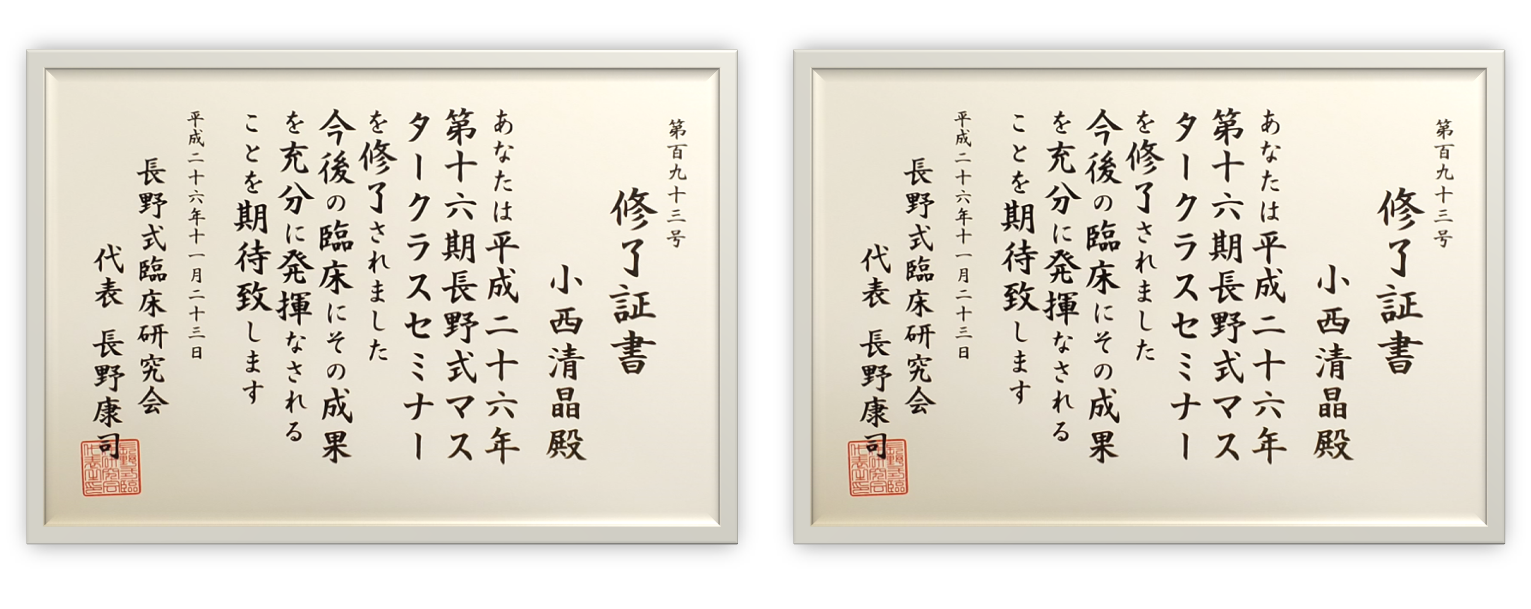 第百九十三号
修了証書
小西清晶殿
あなたは平成二十六年
第十六期長野式マス
タークラスセミナー
を修了されました
今後の臨床にその成果
を充分に発揮なされる
ことを期待致します
平成二十六年十一月二十三日
長野式臨床研究会
代表 長野康司
第百九十三号
修了証書
小西清晶殿
あなたは平成二十六年
第十六期長野式マス
タークラスセミナー
を修了されました
今後の臨床にその成果
を充分に発揮なされる
ことを期待致します
平成二十六年十一月二十三日
長野式臨床研究会
代表 長野康司